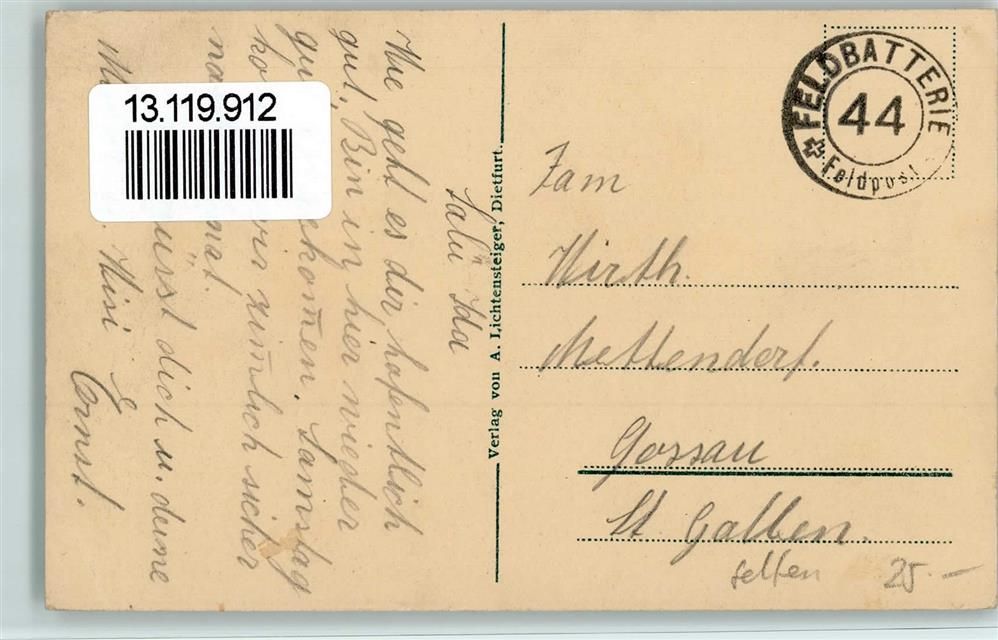 13.119.912
Salü Ida
Wie geht es dir hofentlich
gut, Bin in hier wieder
gu ekomen. Samstag
ko wir zimlich sicher
na
üsst dich u. deine
Ernst.
Verlag von A. Lichtensteiger, Dietfurt.
FELDBATTERIE
44
Feldpost
Fam
Wirth.
Mettendorf.
Gossau
St Gallen.
selten 25.-